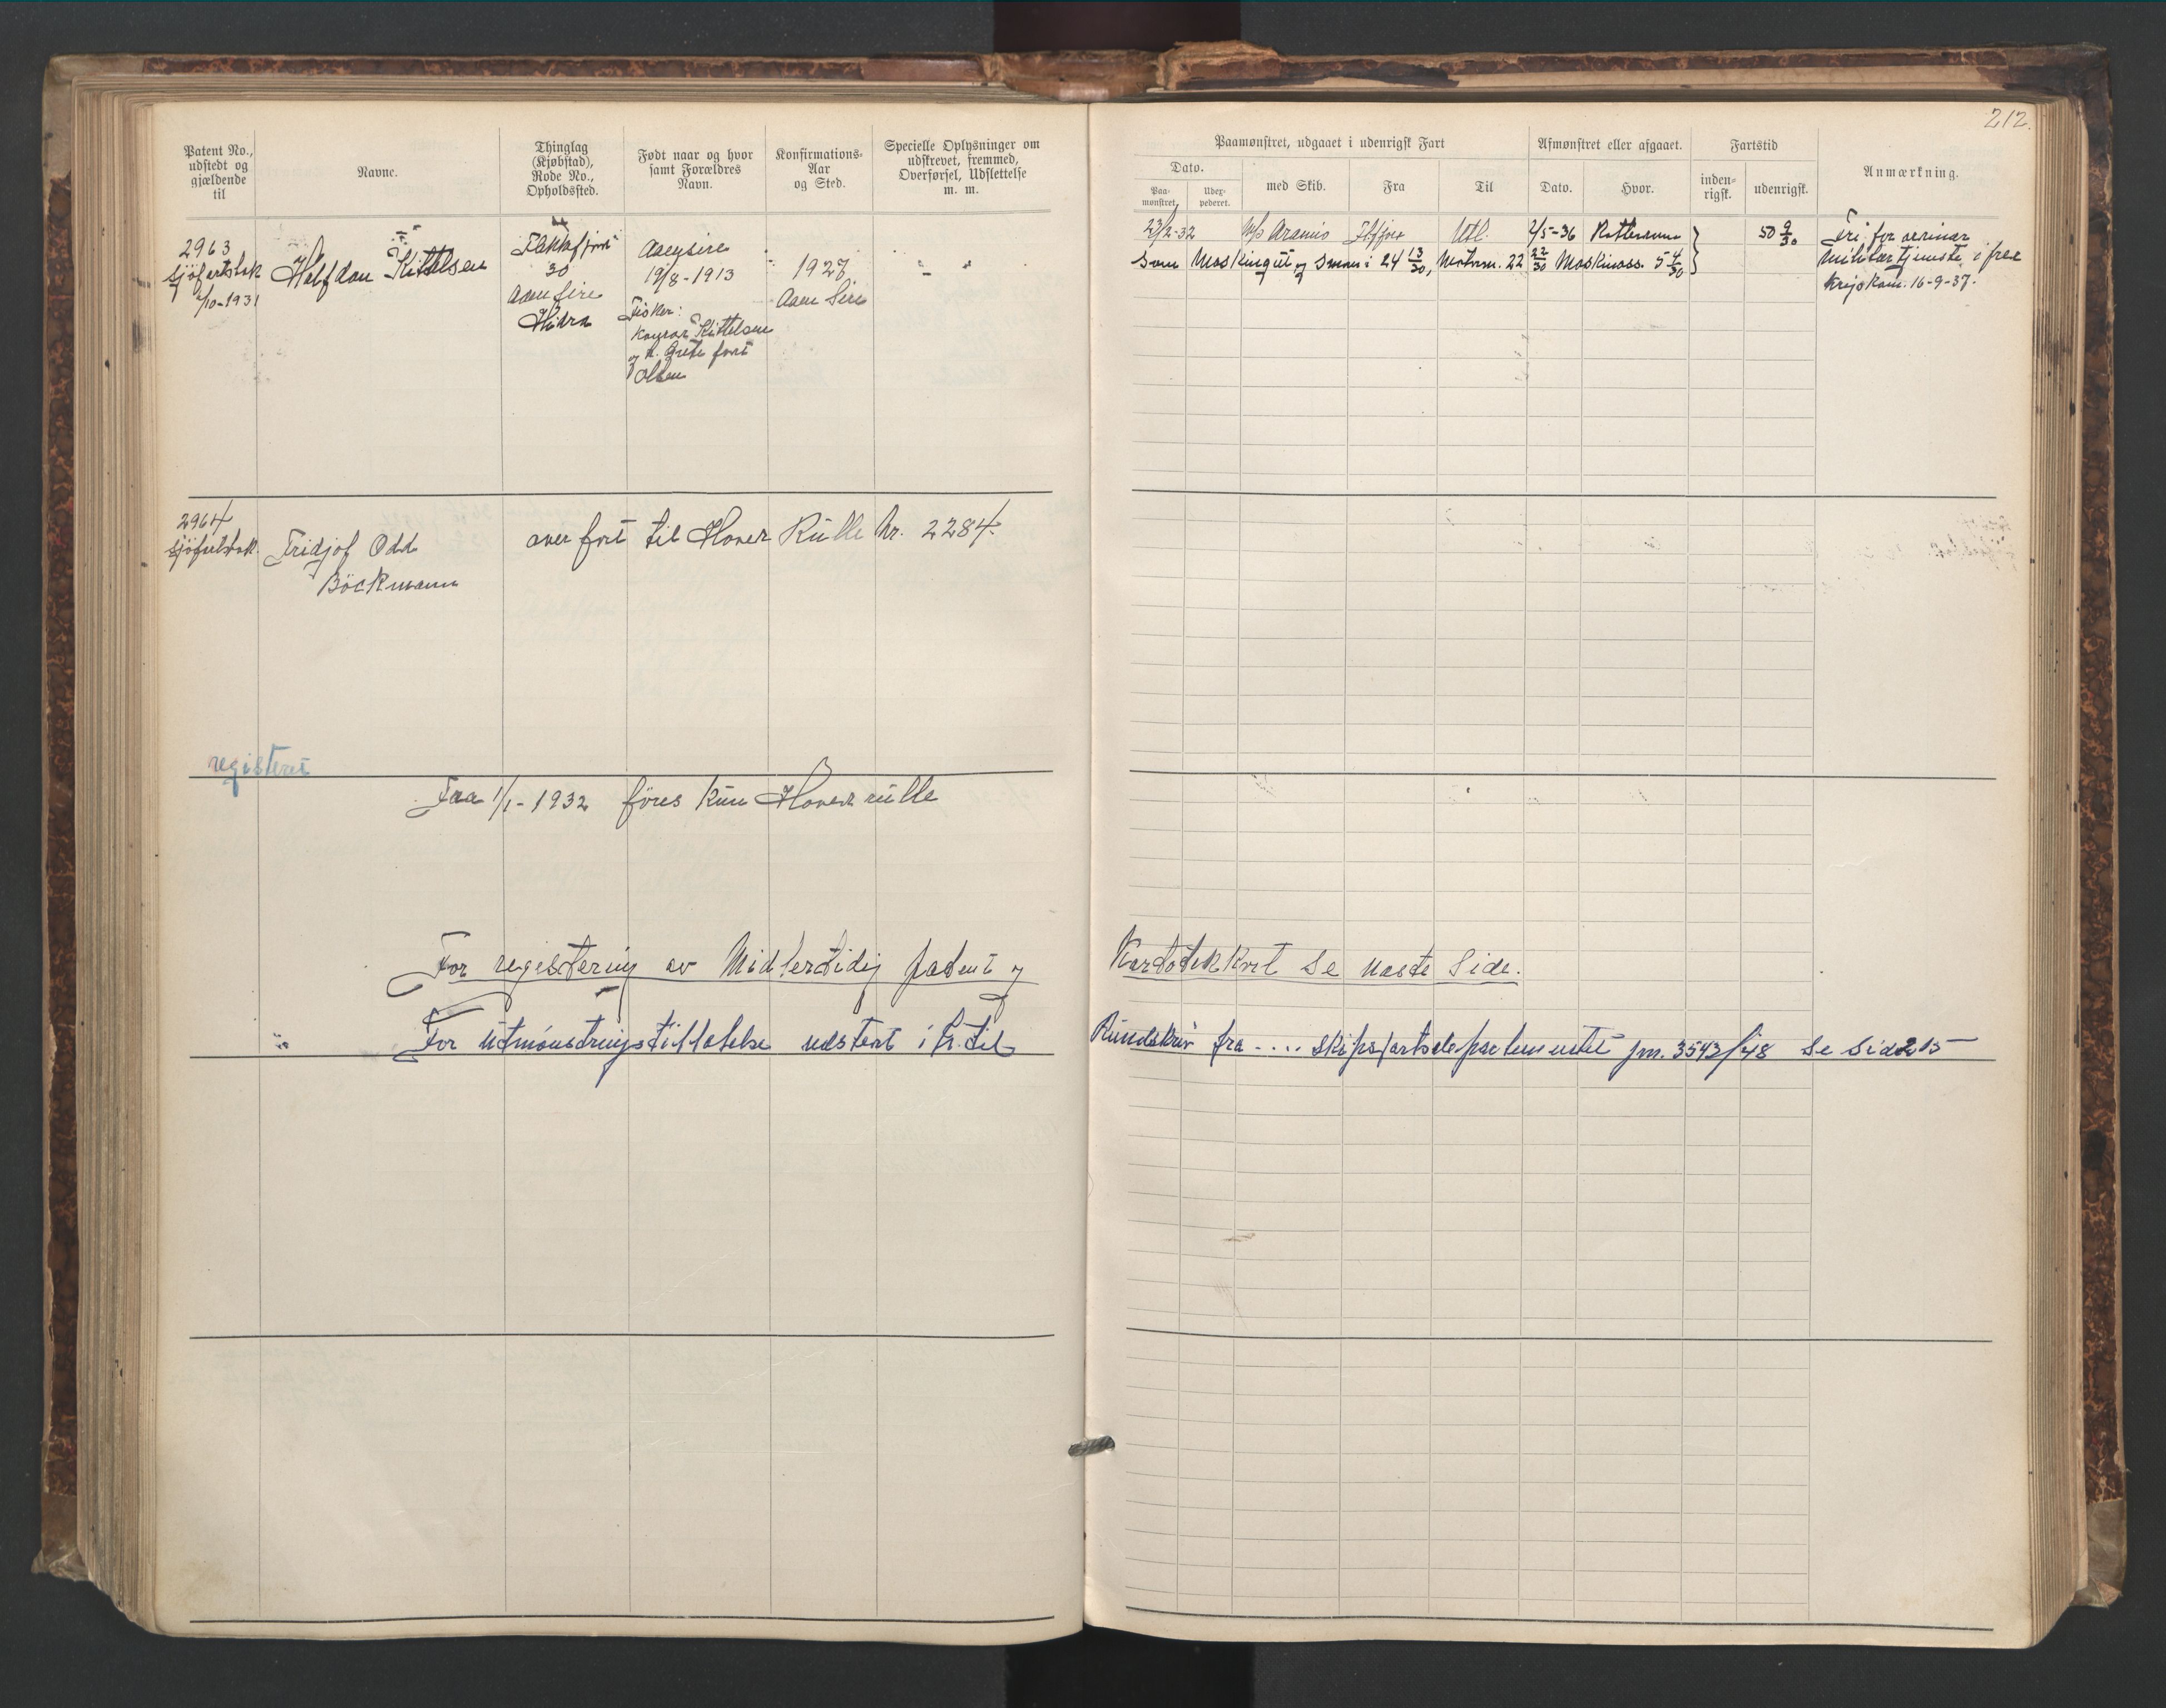 212.
Patent No., udstedt og gjældende til
Navne.
Thinglag (Kjøbstad), Rode No., Opholdssted.
Født naar og hvor samt Forældres Navn.
Konfirmations-Aar og Sted.
Specielle Oplysninger om udskrevet, fremmed, Overførsel, Udslettelse m. m.
Paamønstret, udgaaet i udenrigsk Fart
Dato.
Paa-mønstret
Uder-pederet.
med Skib.
Fra
Til
Afmønstret eller afgaaet.
Dato.
Hvor.
Fartstid
inden-rigsk.
udenrigsk.
Anmærkning.
2963
sjöfartsbok
1931
Halfdan Kittelsen
Flekkefjord
30
Aana Sire
Hidra
Aanasire
19/8-1913
Fisker:
Konrad Kittelsen
og h. Grete født
Olsen
1927
Aana Sire
23/2-32
M/s Aramis
Utl.
2/5-36
Rotterdam
50 9/30
Fri for ordinær
som Maskingut og Smøri 24 13/30, Motorm. 22 22/30 Maskinass. 5 4/30
militær tjeneste i fred
Krigskom. 16-9-37.
2964
sjöfartsbok.
Fridjof Odd
Böckmann
over fört til Hoved Rulle Nr. 2284.
registeret
Fra 1/1-1932 föres kun Hovedrulle
For registering av Midlertidig patent og Kartotekkort Se næste Side.
For Utmönstringstillatelse udstedt i h. til Rundskriv fra .... Skipsfartsdepartementet jnr. 3543/48 Se Side 215